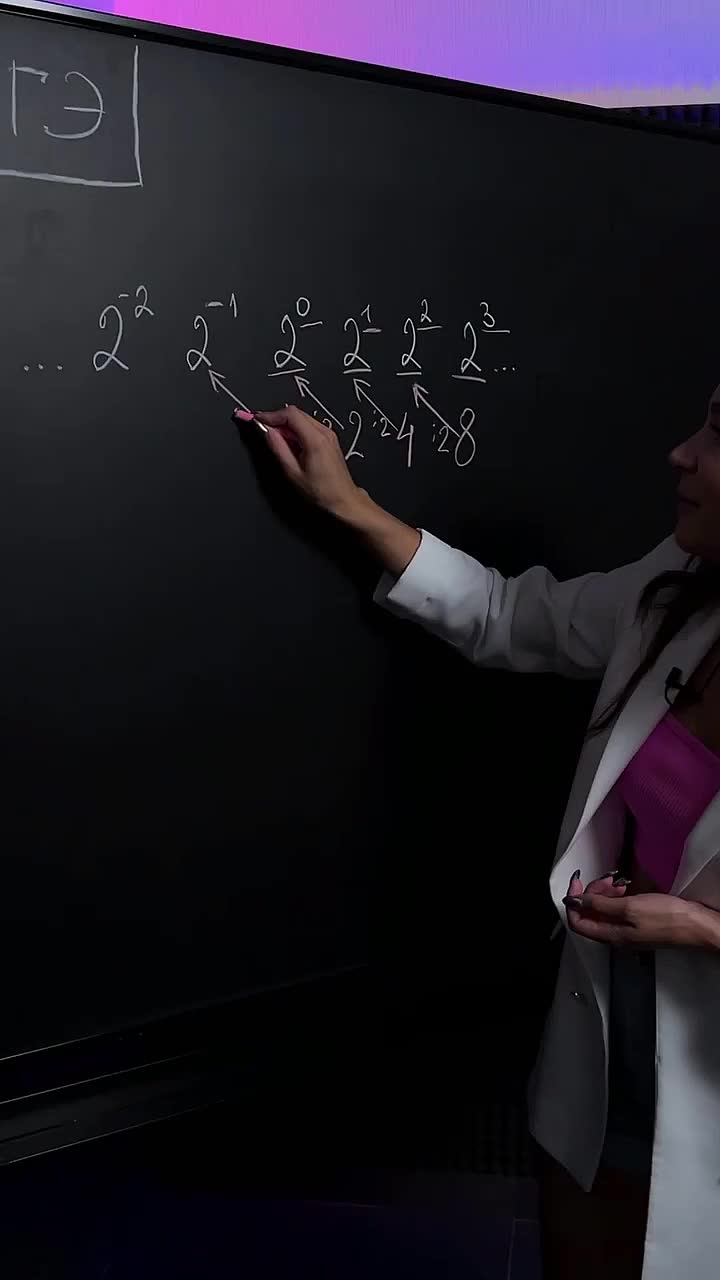 ГЭ
... 2⁻² 2⁻¹ 2⁰ 2¹ 2² 2³ ...
:2 2 :2 4 :2 8